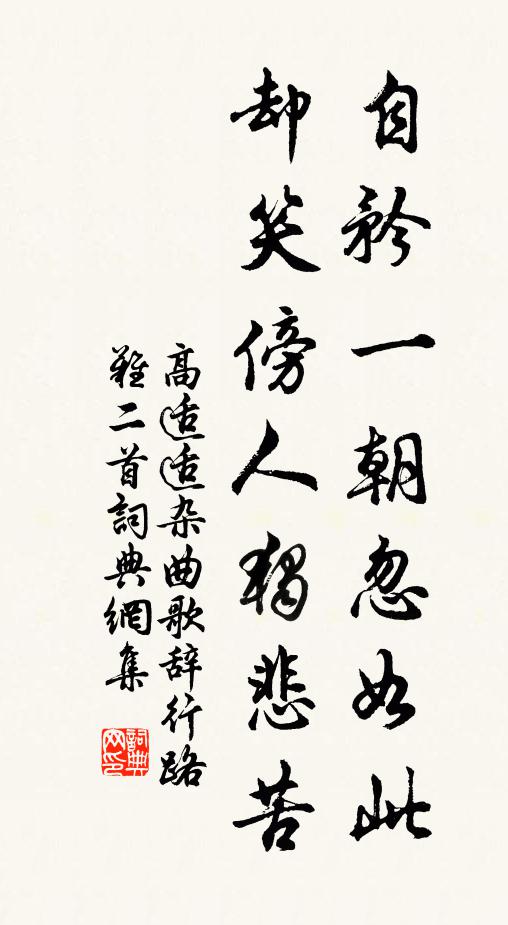 自矜一朝忽如此
却笑傍人獨悲苦
高适适杂曲歌辞行路
難二首詞典網集
詞典
网印